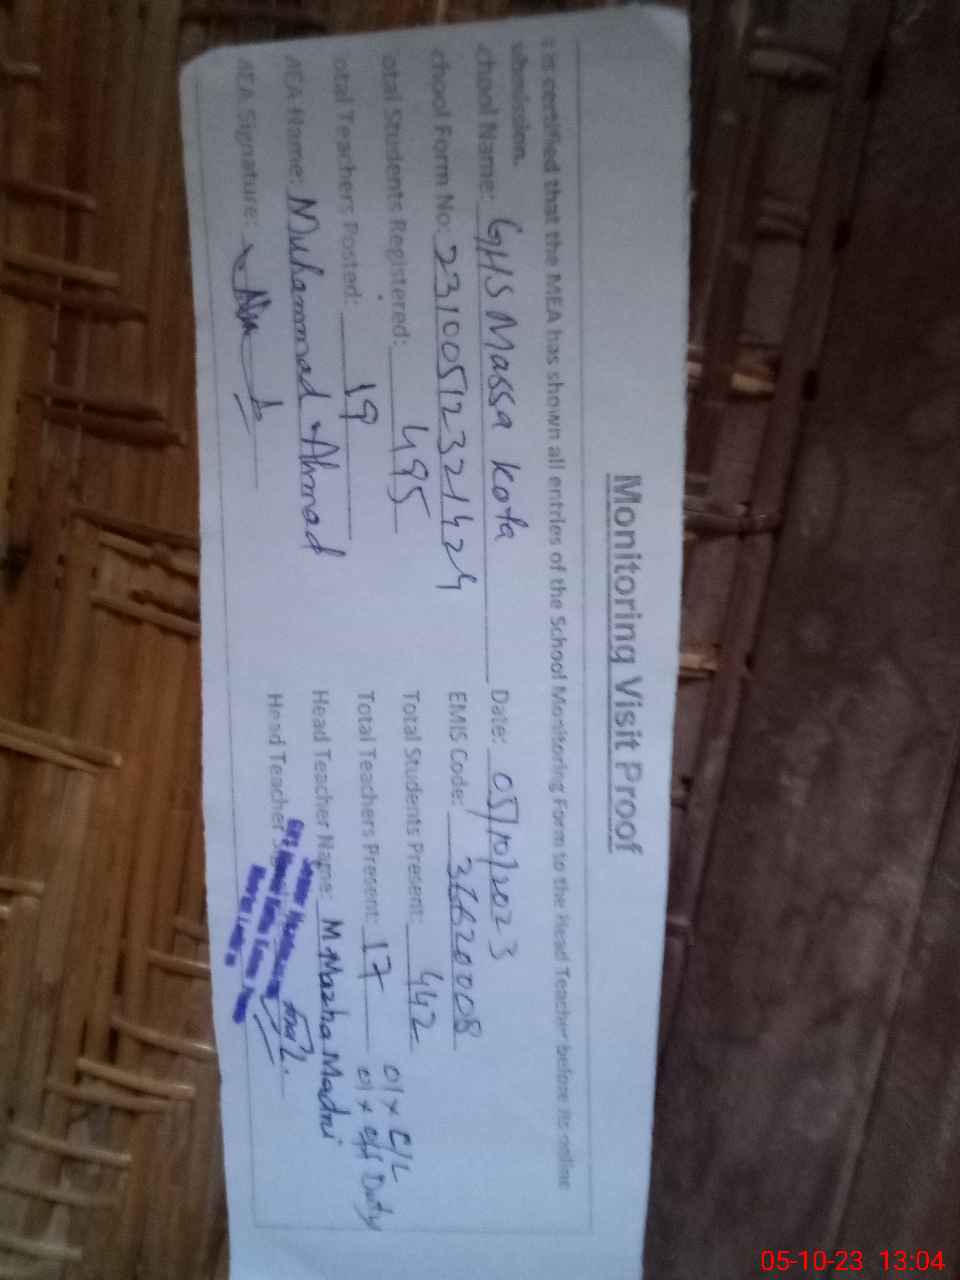 Monitoring Visit Proof
t is certified that the MEA has shown all entries of the School Monitoring Form to the Head Teacher before its online
ubmission.
chool Name: GHS Massa Kota Date: 05/10/2023
chool Form No: 23100512321424 EMIS Code: 31620008
otal Students Registered: 495 Total Students Present: 442
otal Teachers Posted: 19 Total Teachers Present: 17 01 x C/L
01 x off Duty
MEA Name: Muhammad Ahmad Head Teacher Name: M Mazhar Madni
MEA Signature: Head Teacher
05-10-23 13:04